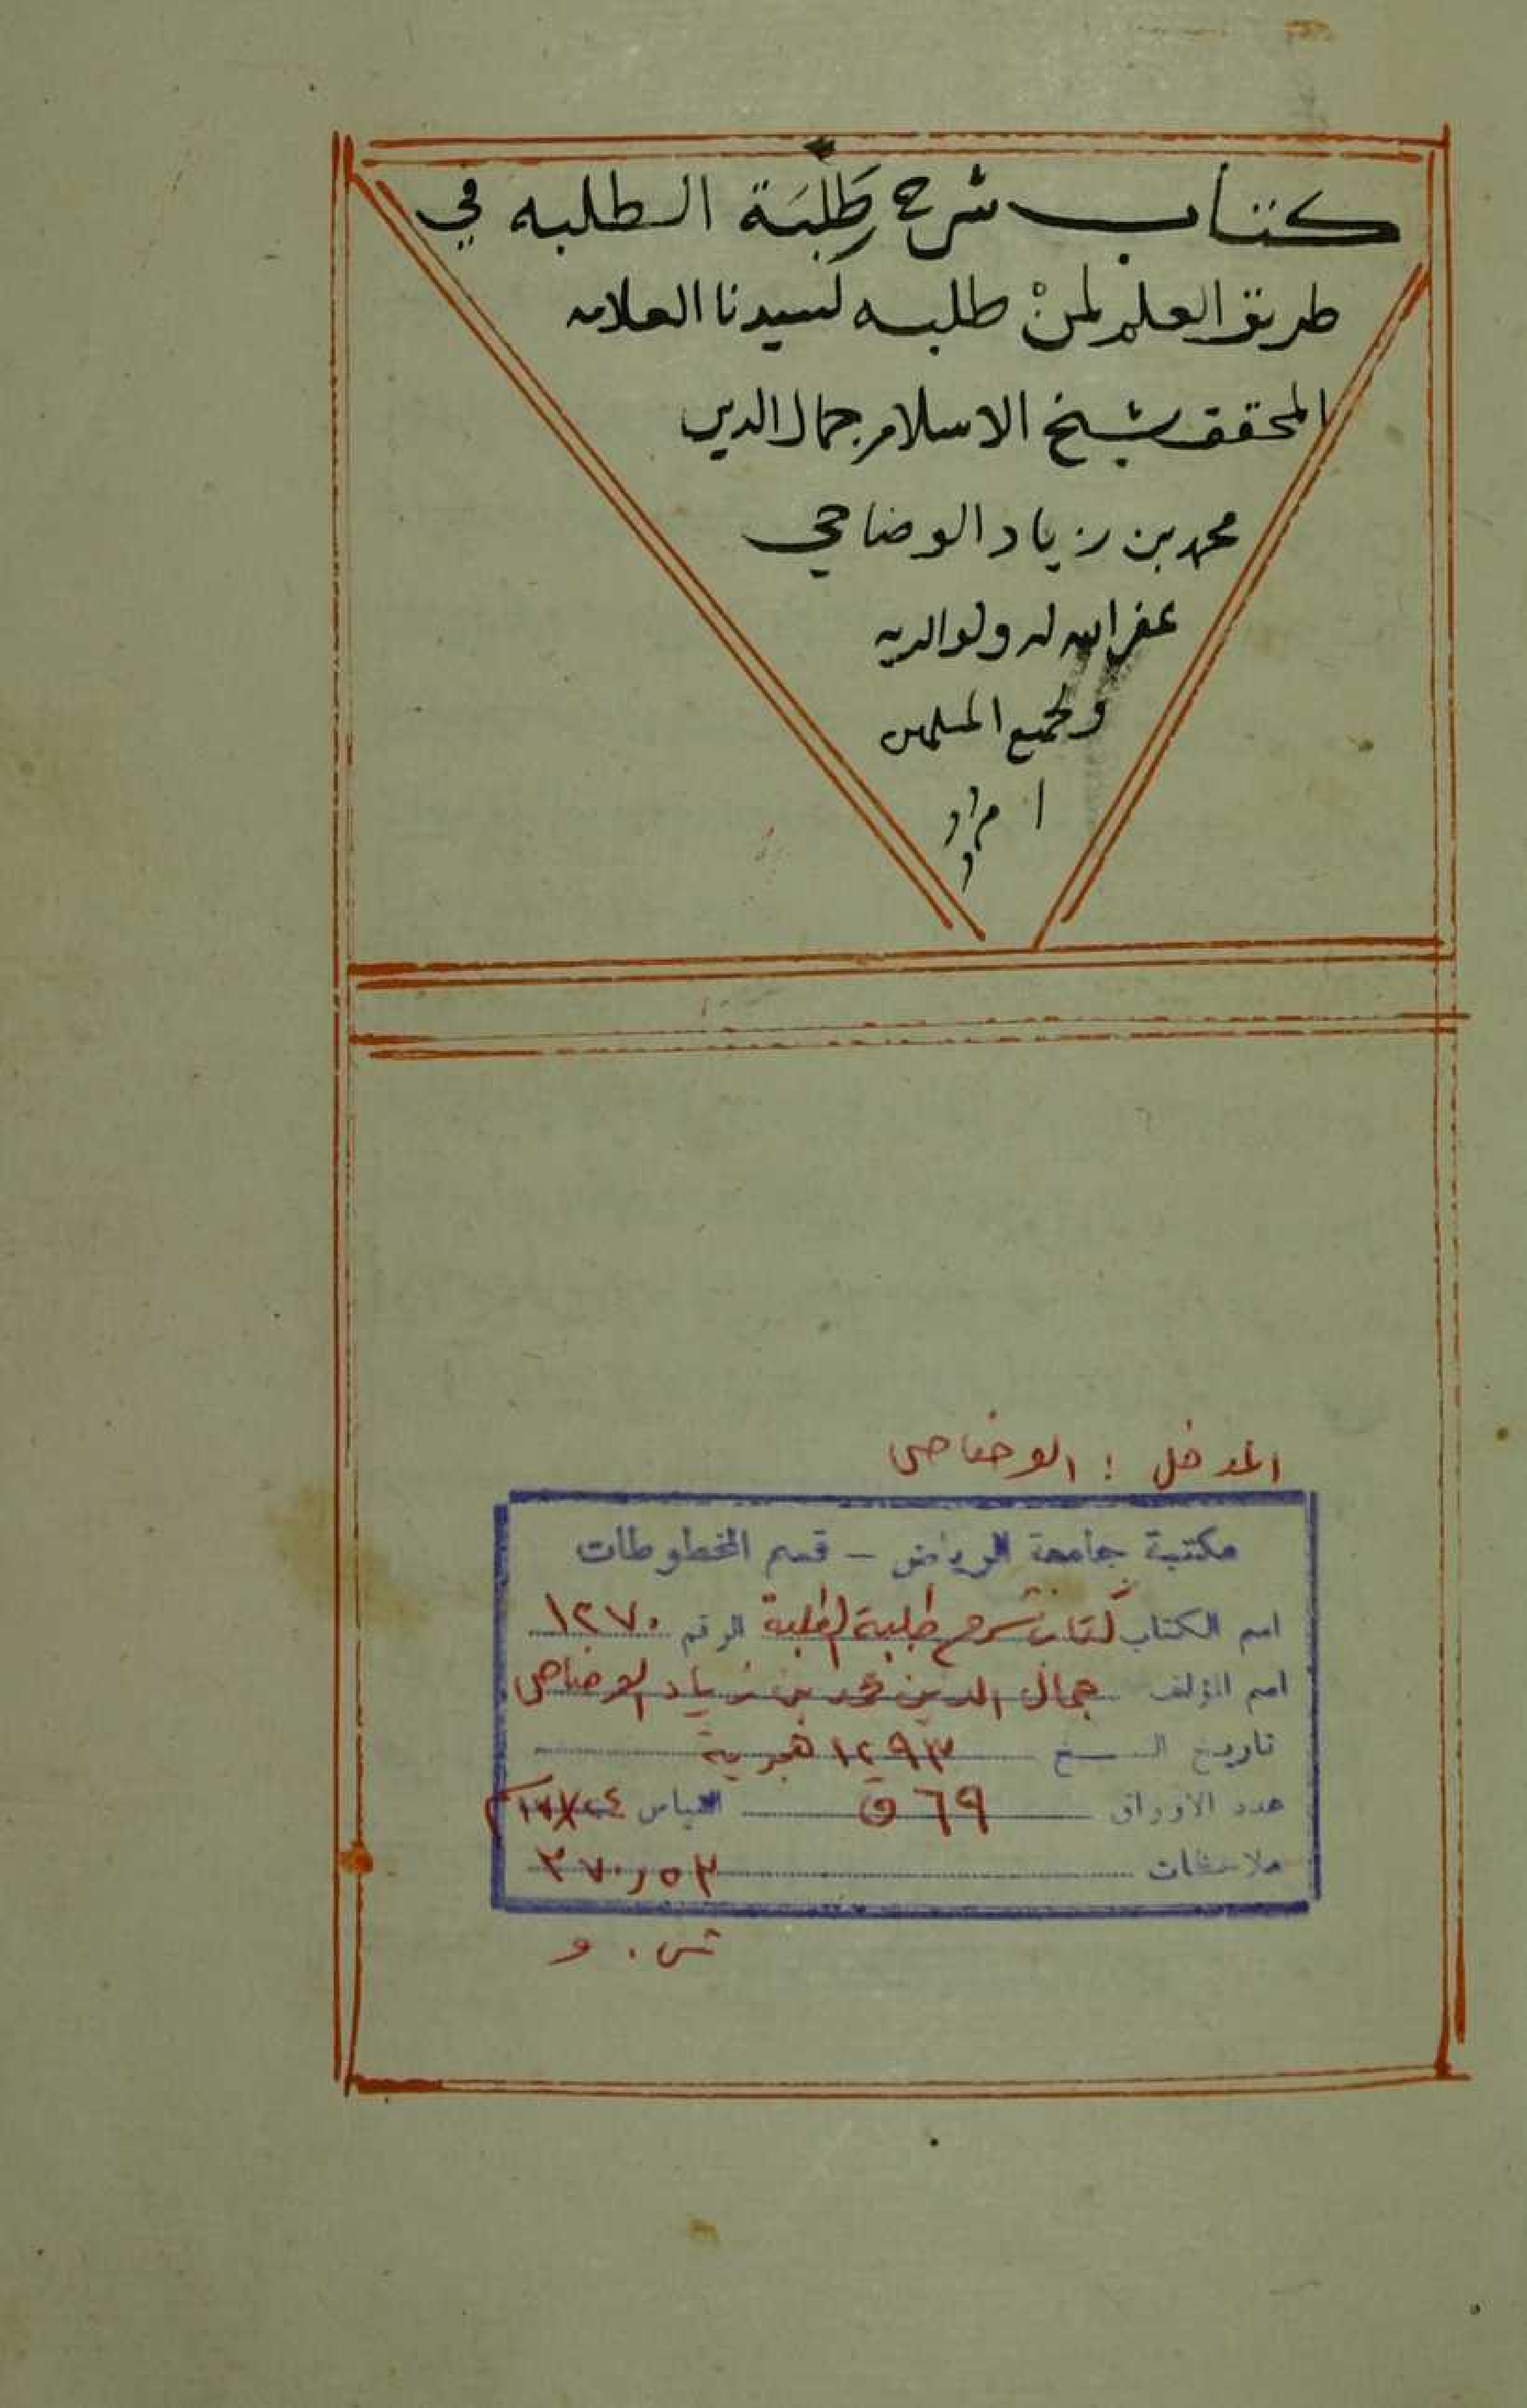 كتاب شرح طِلْبَة الطلبه في
طريق العلم لمنْ طلبه لسيدنا العلامه
المحقق شيخ الاسلام جمال الدين
محمد بن زياد الوضاحي
غفر الله له ولوالديه
ولجميع المسلمين
المدخل : الوضاحي
مكتبة جامعة الرياض - قسم المخطوطات
اسم الكتاب كتاب شرح طلبة الطلبة الرقم ١٢٧٠
اسم المؤلف جمال الدين محمد بن زياد الوضاحي
تاريخ النسخ ١٢٩٣ هجرية
عدد الاوراق ٦٩ ق القياس
ملاحظات ٣٧٠,٥٣
ش . و